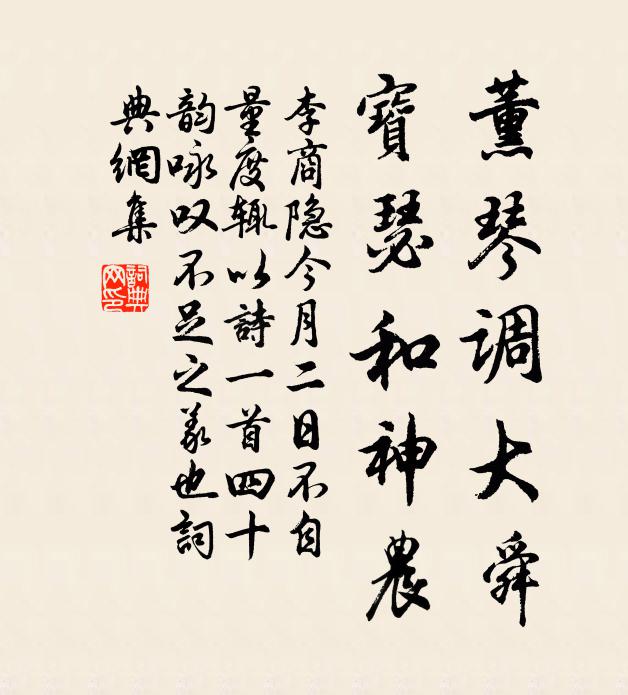 薰琴调大舜
寶瑟和神農
李商隐今月二日不自
量度辄以詩一首四十
韵咏叹不足之义也詞
典網集
詞典
网印